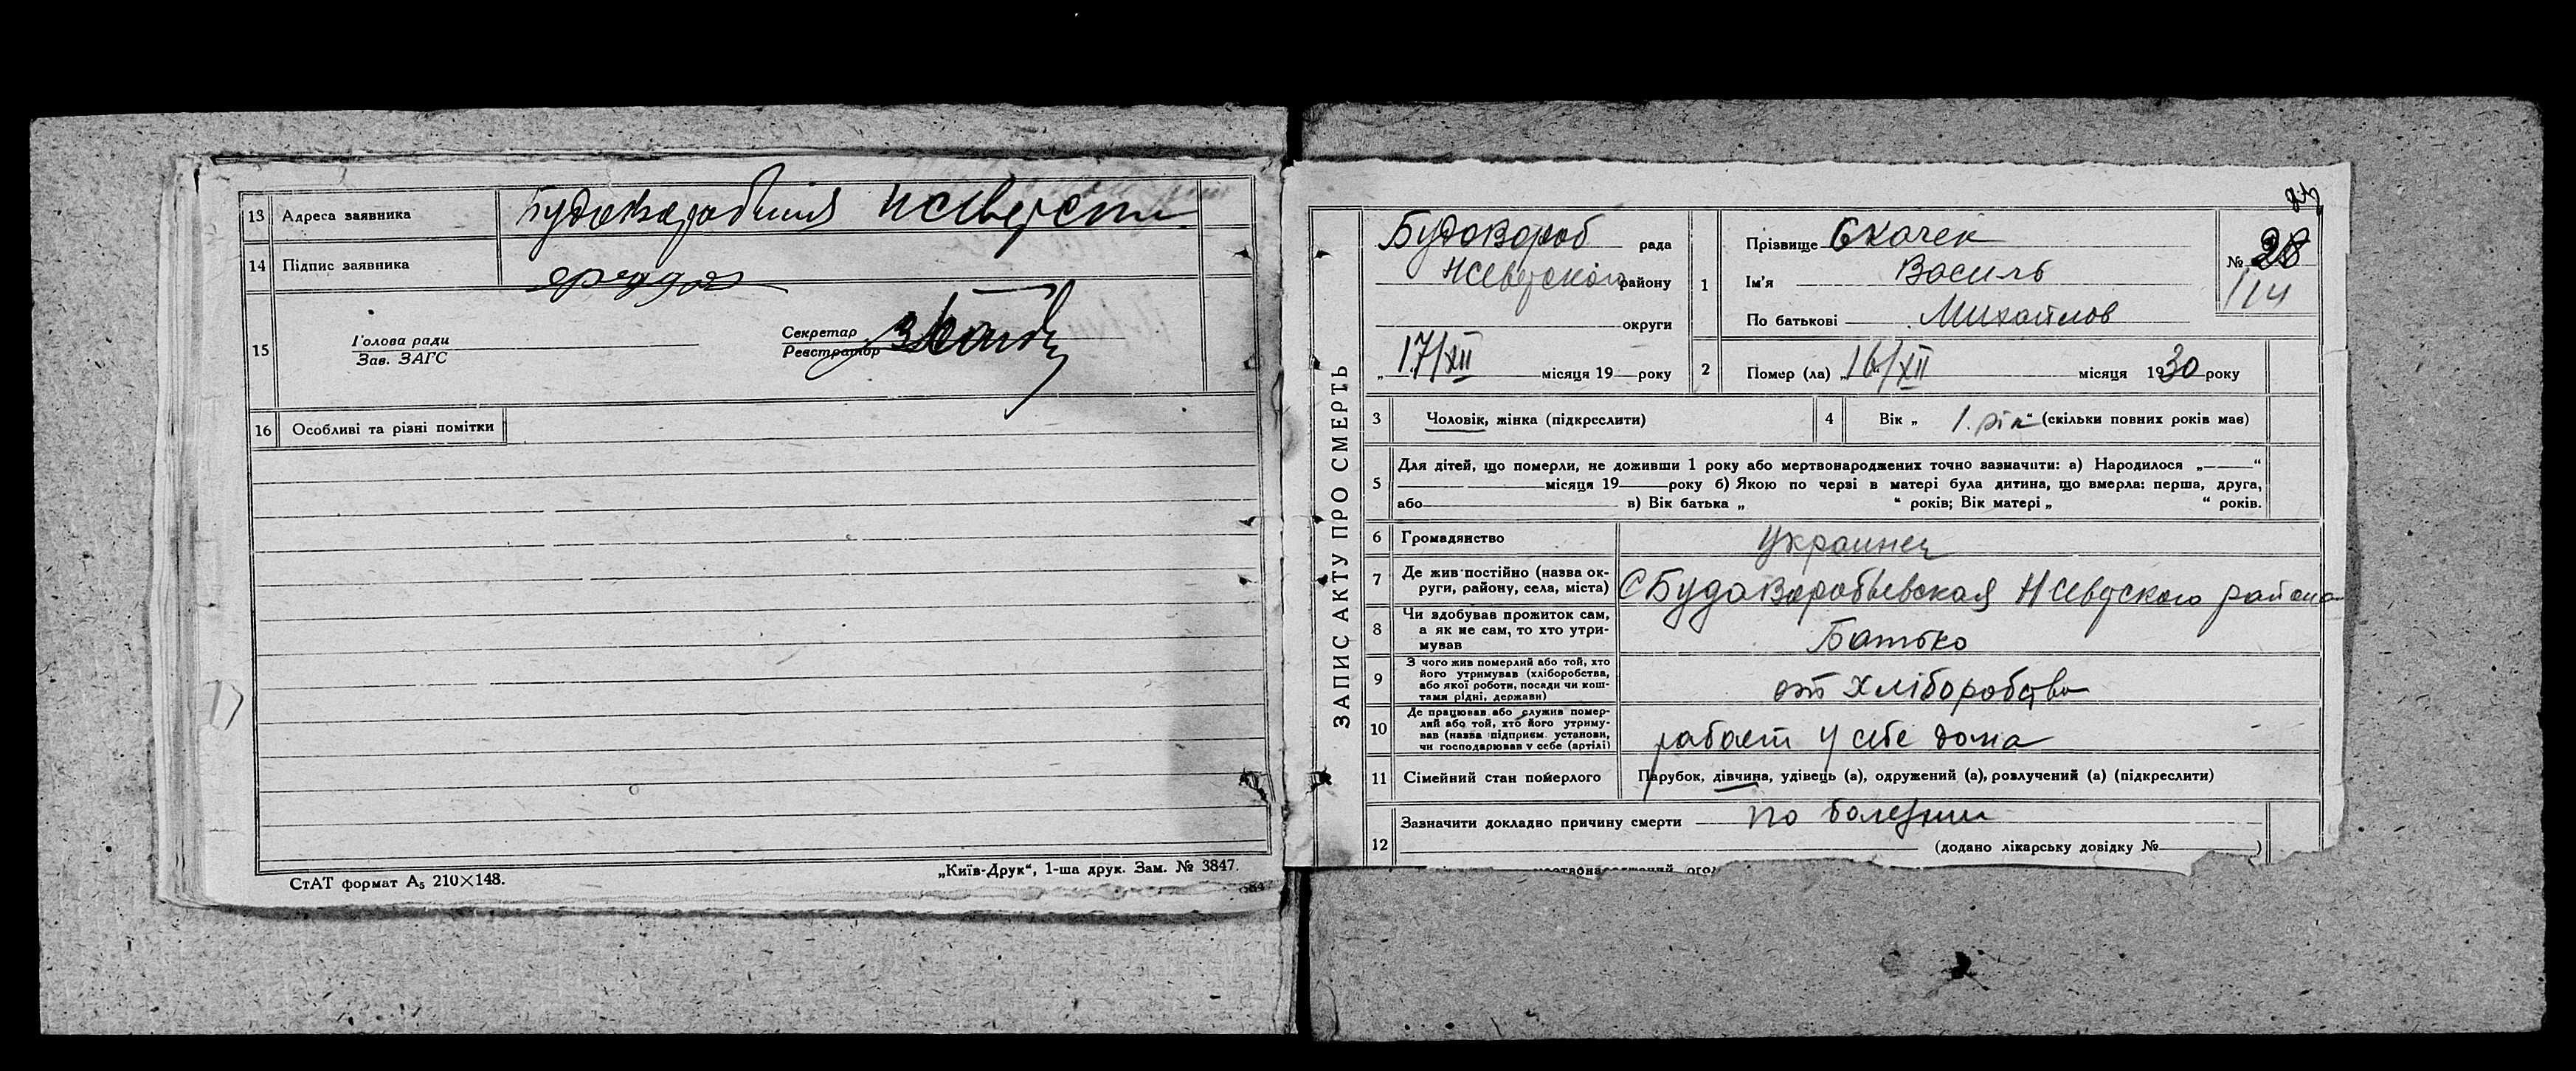 13 Адреса заявника Будоворобиия Нсеверски
14 Підпис заявника
15 Голова ради
Зав. ЗАГС
Секретар
Реєстратор
16 Особливі та різні помітки
СтАТ формат А₅ 210×148.
„Київ-Друк“, 1-ша друк. Зам. № 3847.
ЗАПИС АКТУ ПРО СМЕРТЬ
БудоВороб рада
Нсеверского району
округи
„ 17/XII місяця 19 року
1 Прізвище Скачек
Ім'я Василь
По батькові Михайлов
№ 28
114
2 Помер (ла) „ 16/XII місяця 1930 року
3 Чоловік, жінка (підкреслити)
4 Вік „ 1. рік “ (скільки повних років має)
5 Для дітей, що померли, не доживши 1 року або мертвонароджених точно зазначити: а) Народилося „ “
місяця 19 року б) Якою по черзі в матері була дитина, що вмерла: перша, друга,
або в) Вік батька „ “ років; Вік матері „ “ років.
6 Громадянство Украинец
7 Де жив постійно (назва ок-
руги, району, села, міста) С БудаВоробьевская Нсевдского района
8 Чи здобував прожиток сам,
а як не сам, то хто утри-
мував Батько
9 З чого жив померлий або той, хто
його утримував (хліборобства,
або якої роботи, посади чи кош-
тами рідні, держави) от хліборобства
10 Де працював або служив помер-
лий або той, хто його утриму-
вав (назва підприєм. установи,
чи господарював у себе (артілі) рабает у себе дома
11 Сімейний стан померлого Парубок, дівчина, удівець (а), одружений (а), розлучений (а) (підкреслити)
12 Зазначити докладно причину смерти по болезни
(додано лікарську довідку № )